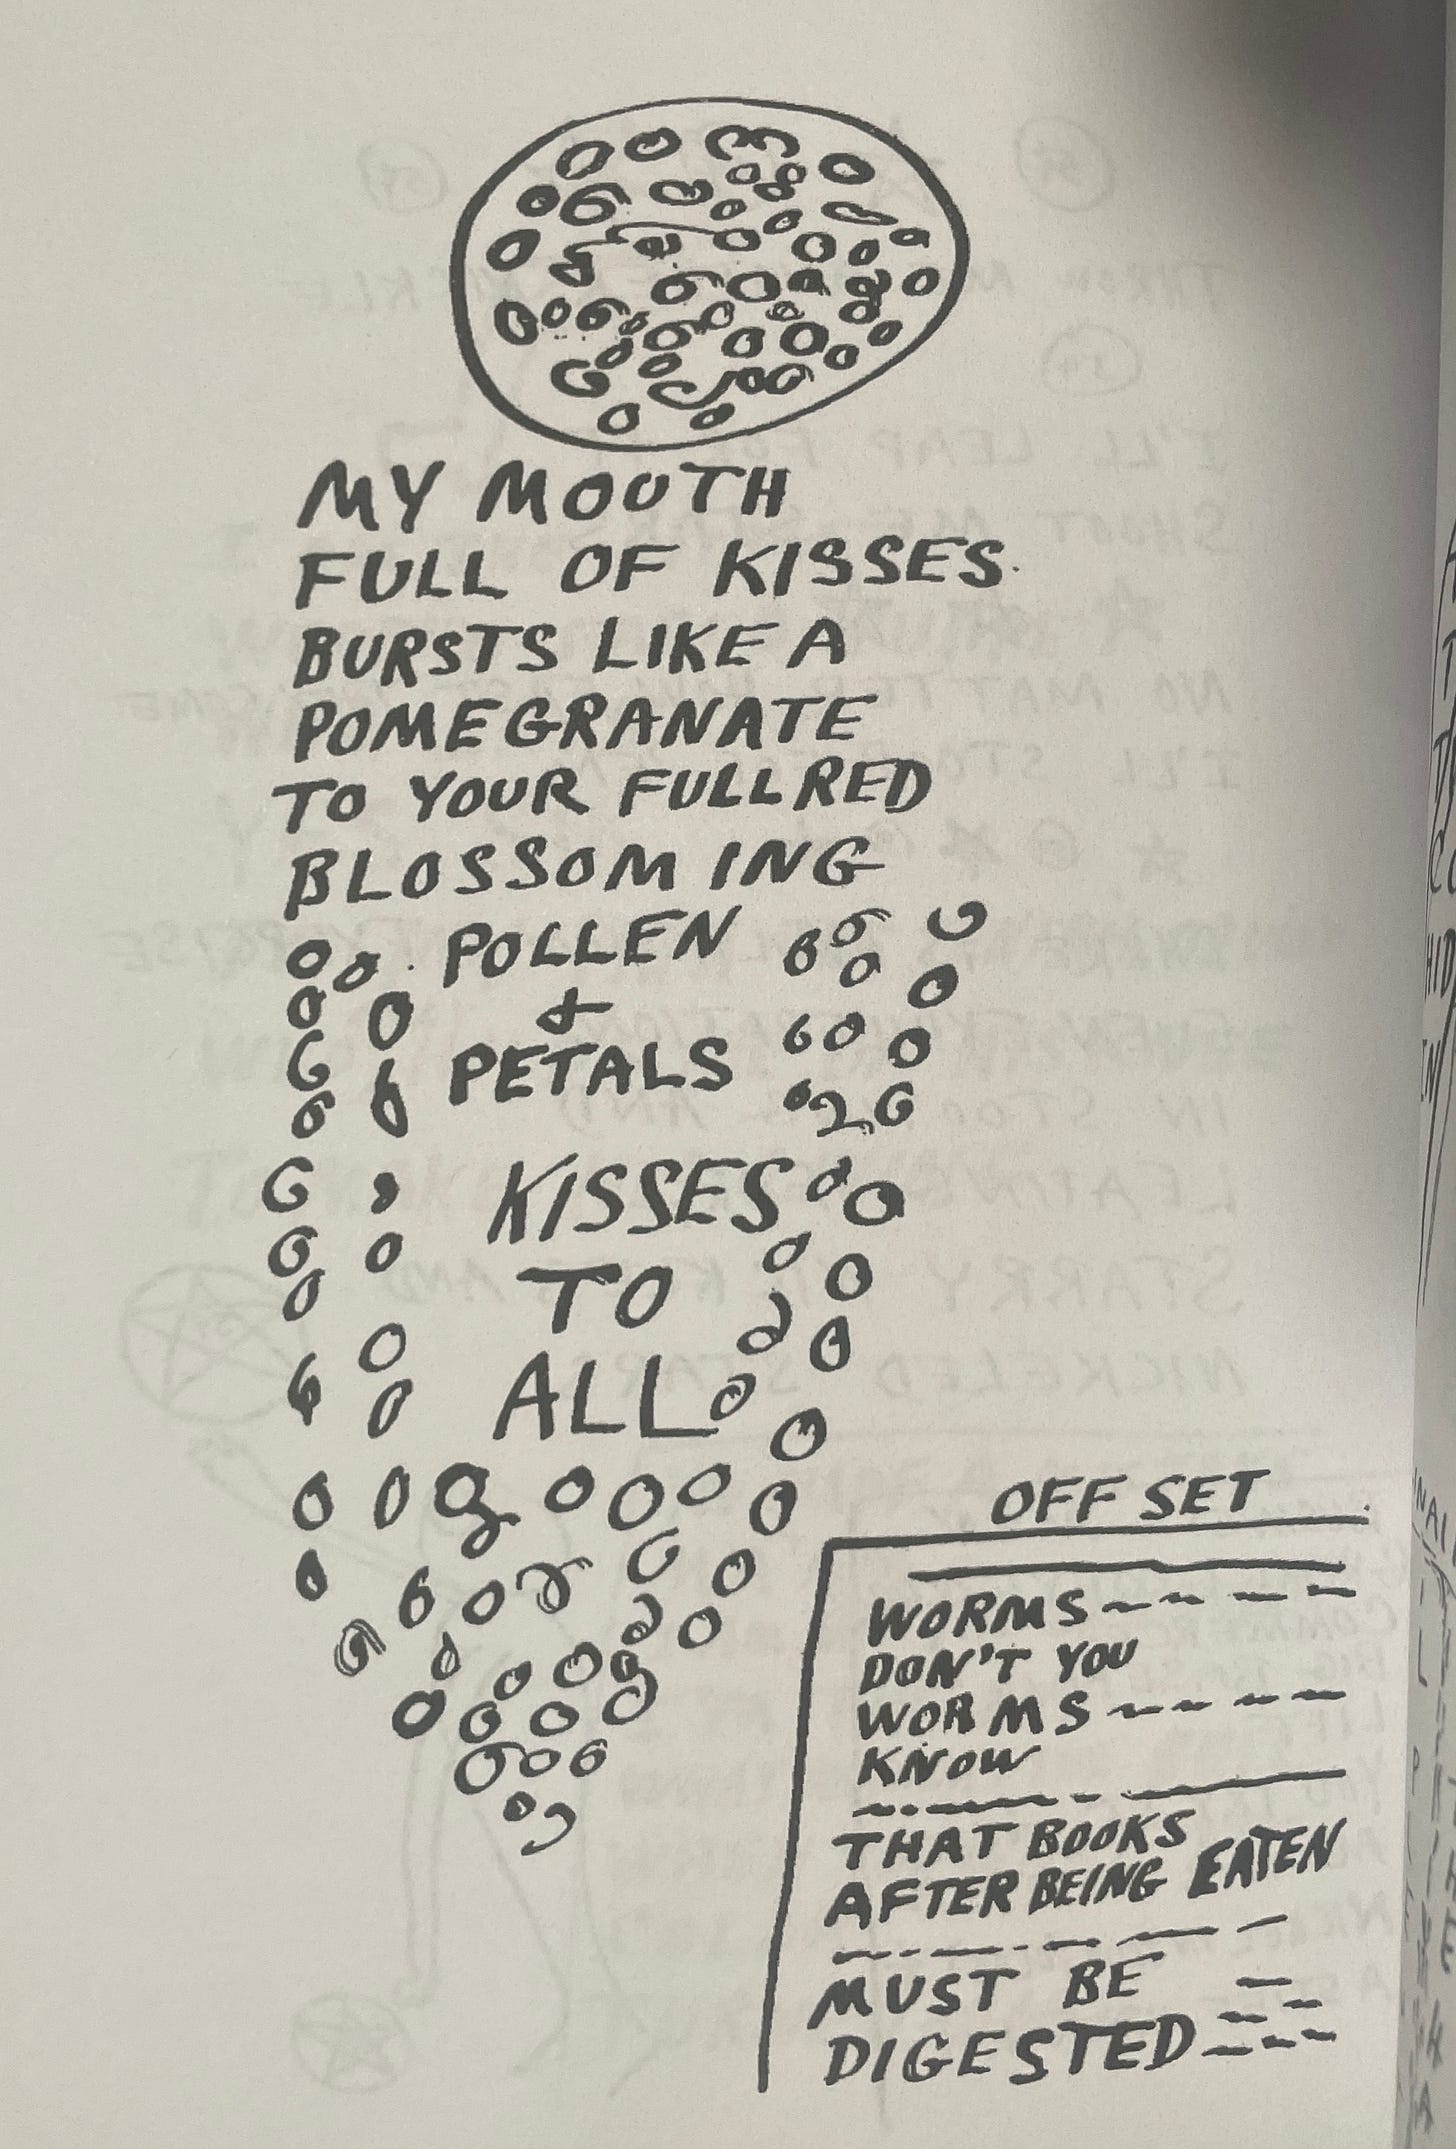 MY MOUTH
FULL OF KISSES
BURSTS LIKE A
POMEGRANATE
TO YOUR FULL RED
BLOSSOMING
POLLEN
&
PETALS
KISSES
TO
ALL
OFF SET
WORMS
DON'T YOU
WORMS
KNOW
THAT BOOKS
AFTER BEING EATEN
MUST BE
DIGESTED